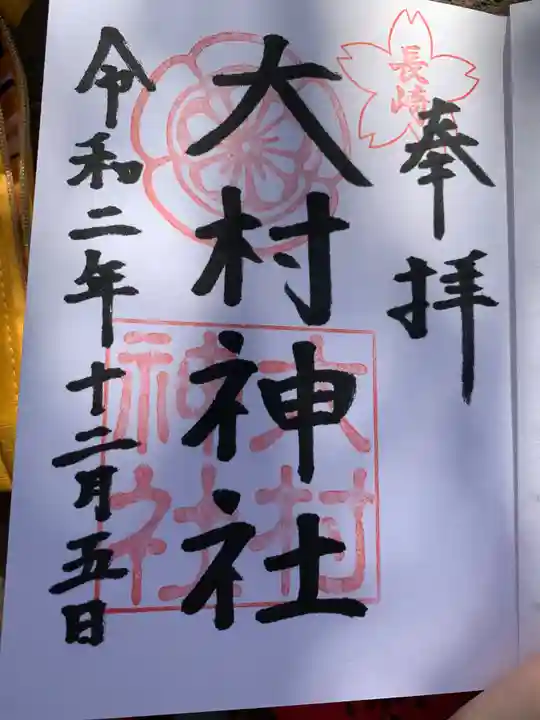 長崎
奉拝
大村神社
大村
神社
令和二年十二月五日